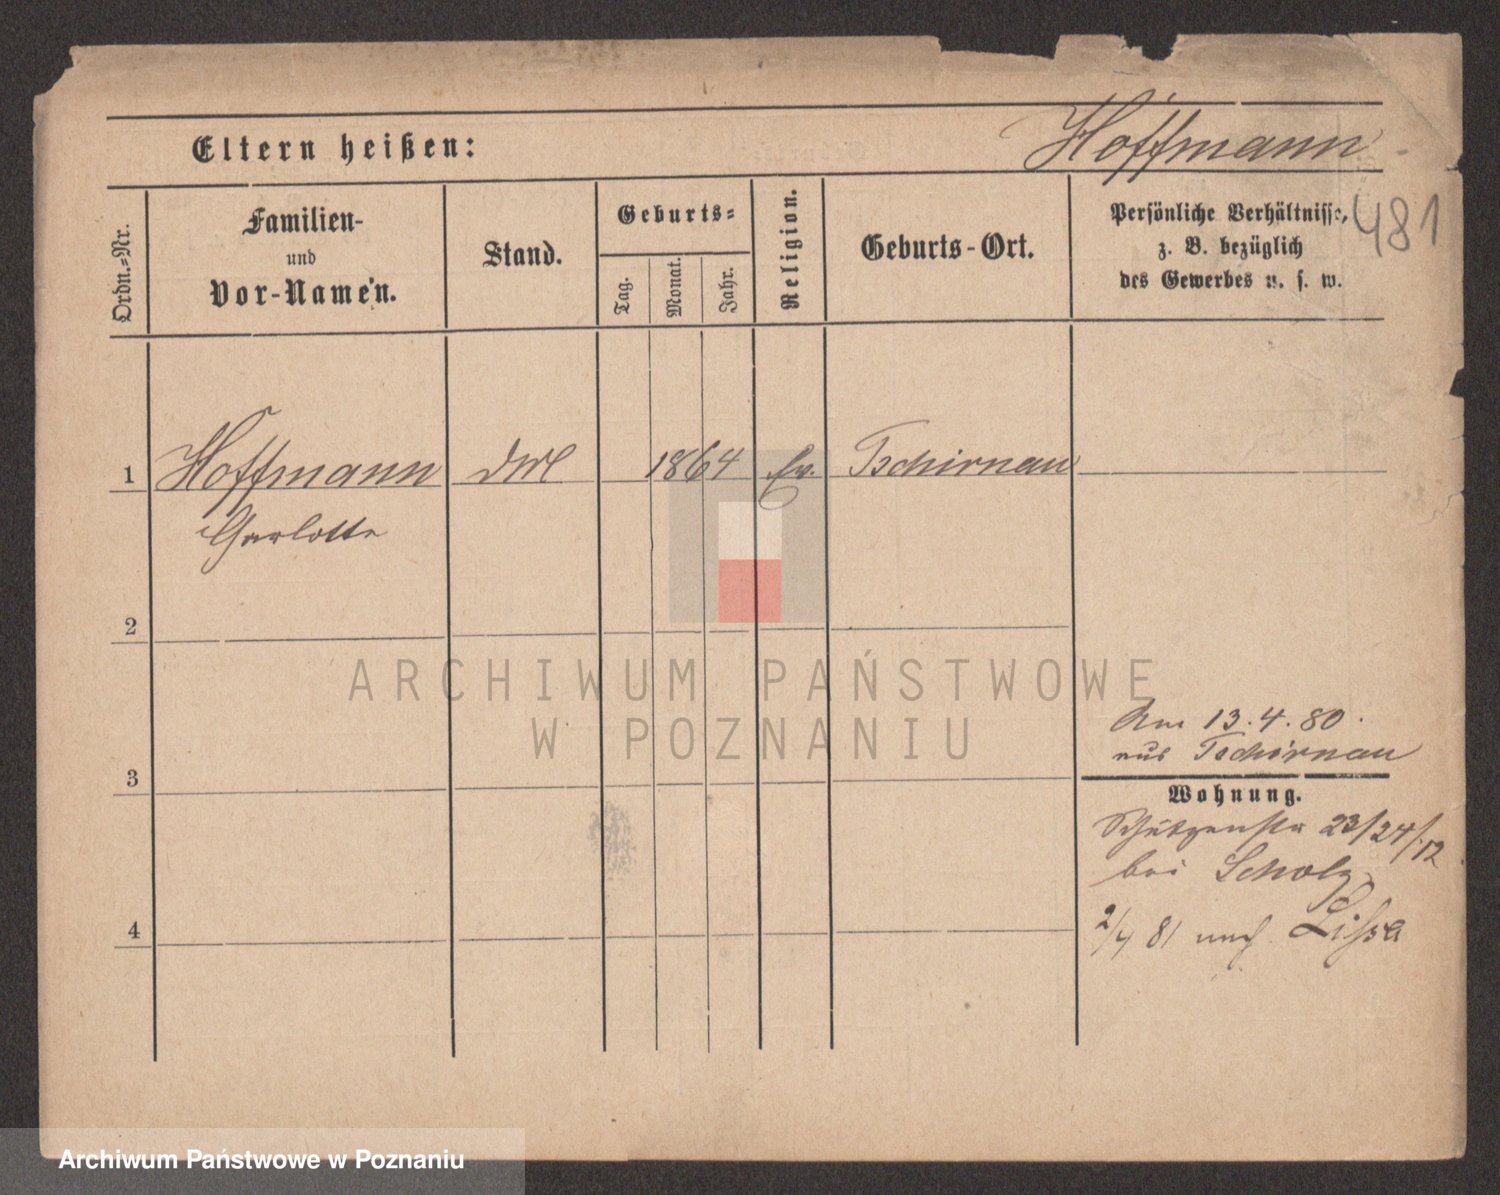 Hoffmann
Eltern heißen:
481
Ordn.=Nr.
Familien-
und
Vor-Namen.
Stand.
Geburts=
Tag.
Monat.
Jahr.
Religion.
Geburts-Ort.
Persönliche Verhältnisse,
z. B. bezüglich
des Gewerbes u. s. w.
1 Hoffmann 1864 Ev. Tschirnau
Charlotte
2
3
4
Am 13.4.80.
aus Tschirnau
Wohnung.
Schützenstr 23/24/12
bei Scholz
2/4 81 nach Lissa
ARCHIWUM PAŃSTWOWE
W POZNANIU
Archiwum Państwowe w Poznaniu